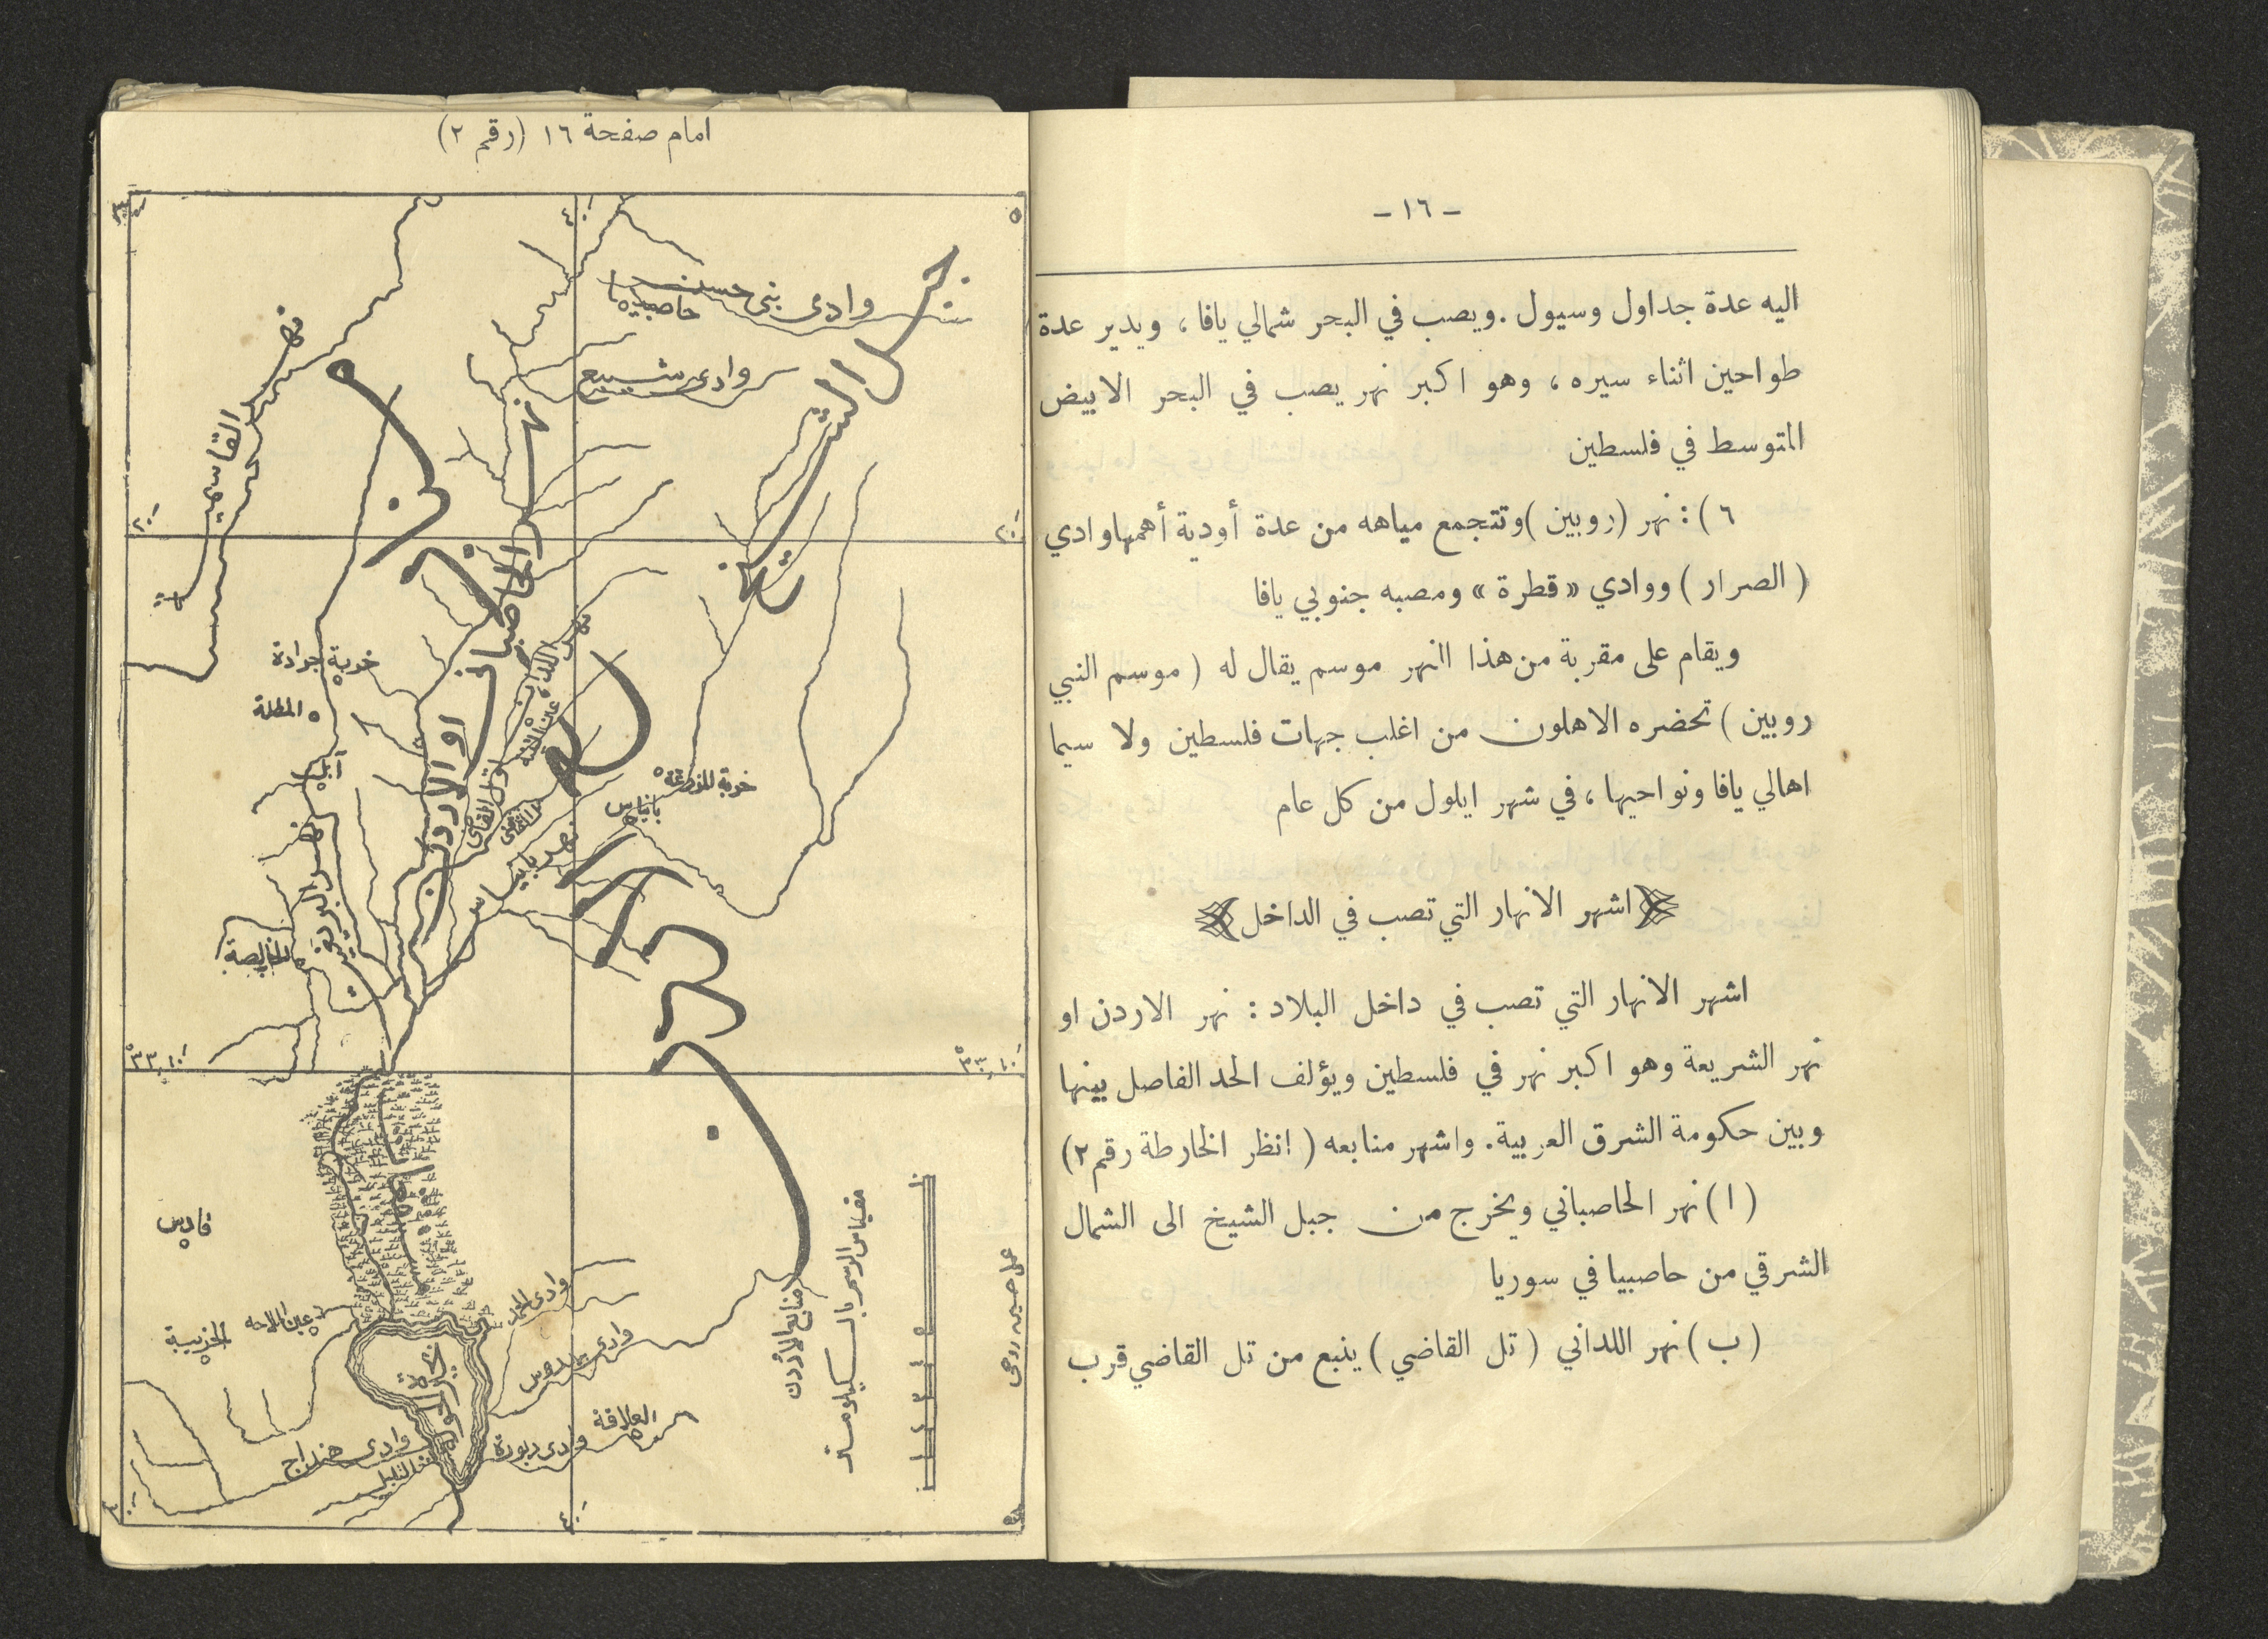 - ١٦ -
اليه عدة جداول وسيول . ويصب في البحر شمالي يافا ، ويدير عدة
طواحين اثناء سيره ، وهو اكبر نهر يصب في البحر الابيض
المتوسط في فلسطين
٦ ) : نهر ( روبين ) وتتجمع مياهه من عدة أودية أهمها وادي
( الصرار ) ووادي « قطرة » ومصبه جنوبي يافا
ويقام على مقربة من هذا النهر موسم يقال له ( موسم النبي
روبين ) تحضره الاهلون من اغلب جهات فلسطين ولا سيما
اهالي يافا ونواحيها ، في شهر ايلول من كل عام
اشهر الانهار التي تصب في الداخل
اشهر الانهار التي تصب في داخل البلاد : نهر الاردن او
نهر الشريعة وهو اكبر نهر في فلسطين ويؤلف الحد الفاصل بينها
وبين حكومة الشرق العربية . واشهر منابعه ( انظر الخارطة رقم ٢ )
( ا ) نهر الحاصباني ويخرج من جبل الشيخ الى الشمال
الشرقي من حاصبيا في سوريا
( ب ) نهر اللداني ( تل القاضي ) ينبع من تل القاضي قرب
امام صفحة ١٦ ( رقم ٢ )
وادي بني حسن
حاصبيا
جبل الشيخ
وادي شبيع
نهر القاسمية
نهر الحاصباني او الاردن
نهر اللدان
خربة جرادة
المطلة
آبل
تل القاضي
بانياس
نهر بانياس
نهر البريغيت
الخالصة
٢٠
٢٠
٣٣,١٠
٣٣,١٠
قادس
عين الملاحه
بحيرة الحولة
وادي هنداج
وادي دبورة
العلاقة
منابع الأردن
مقياس الرسم بالكيلومتر